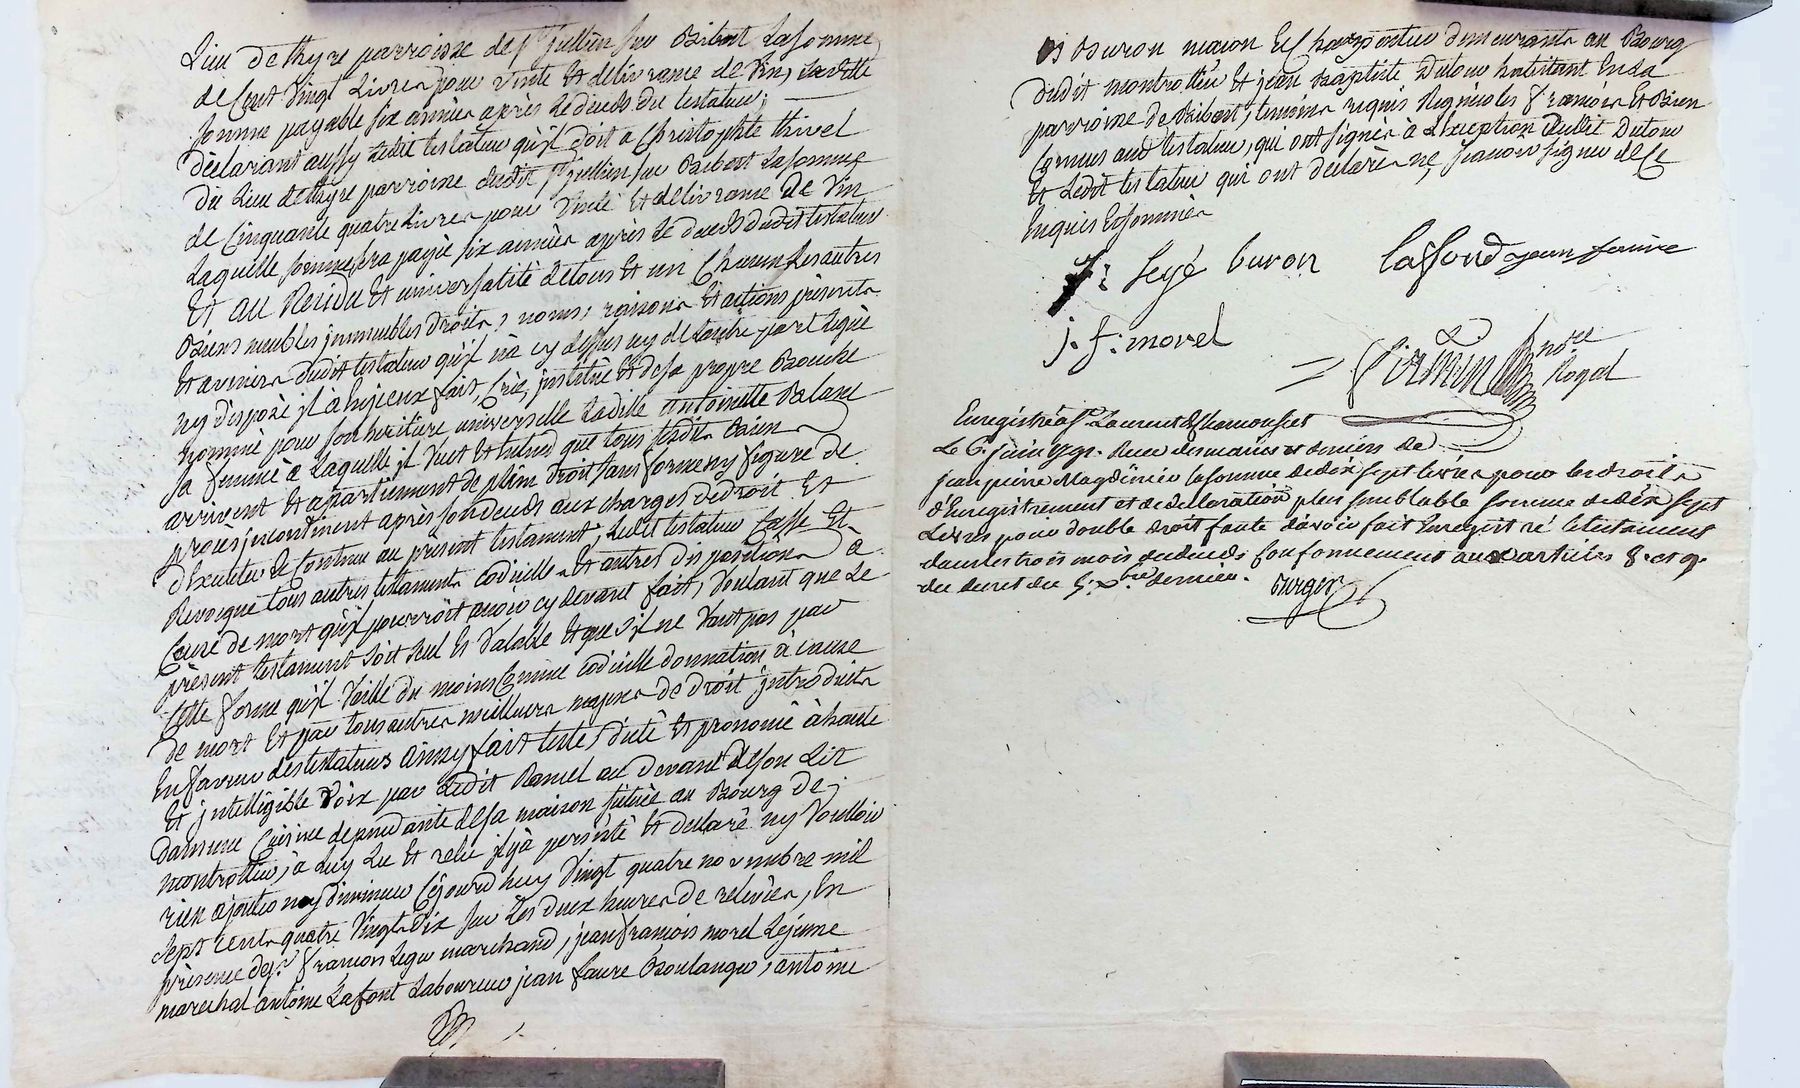 Lieu de thyre parroisse de st jullien sur Bibost la somme
de cent vingt Livres pour vente et delivrance de vin, Ladite
somme payable six années après le décéds du testateur,
déclarant aussy Ledit testateur qu'il doit a Christophle thivel
du Lieu de thyre parroisse dudit st jullien sur Bibost La somme
de cinquante quatre Livres pour vente et delivrance de vin
Laquelle somme sera payée six années après le décéds dudit testateur
Et au Residu et universalité de tous et un Chacun ses autres
Biens meubles jmmeubles droits, noms, raisons et actions présents
et avenirs dudit testateur qu'il n'a cy dessus ny de l'autre part légué
ny disposé il a hijceux fait, Créé, jnstitué et de sa propre Bouche
nommé pour son heritiere universelle Ladite antoinette Balant
sa femme a Laquelle jl veut et entend que tous sesdits Biens
arrivent et apartiennent de plein droit sans forme ny figure de
procès jncontinent après son décéds aux charges de droit et
d'executer le Contenu au présent testament, Ledit testateur Casse et
Revoque tous autres testaments Codicilles et autres dispositions à
Cause de mort qu'il pourroit avoir cy devant fait, voulant que Le
présent testament soit seul et valable et que s'il ne vaut pas par
cette forme qu'il vaille du moins comme codicille donnation à cause
de mort et par tous autres meilleurs moyens de droit jntroduits
En faveur des testateurs ainsy fait testé, dicté et prononcé à haute
et jntelligible voix par Ledit Ramel au devant de son Lit
dans une Cuisine dependante de sa maison située au Bourg de
montrottier, à luy Lu et relu jl y a persisté et declaré ny vouloir
rien ajouter ny diminuer Cejourd'huy vingt quatre novembre mil
sept cents quatre vingt dix sur les deux heures de relevées, En
présence de sr françois Legé marchand, jean françois morel Lejeune
marechal antoine Lafont Laboureur jean faure Boulanger, antoine
Buron maçon et charpentier demeurants au Bourg
dudit montrottier et jean Baptiste Dutour habitant En la
parroisse de Bibost, temoins requis Régnicoles françois et Bien
Connus audit testateur, qui ont signés à L'exception dudit Dutour
et Ledit testateur qui ont declarés ne sçavoir signer de ce
Enquis et sommés
f: Legé buron Laffond jean faure
j. f: morel
= Firmin nore
Royal
Enregistré à st Laurent de chamousset
Le 6. juin 1791. Reçu des mains et deniers de
jean pierre Magdinier la somme de dix sept livres pour les droits
d'Enregistrement et de declaration plus semblable somme de dix sept
Livres pour double droit faute d'avoir fait Enregistré le testament
dans les trois mois du decéds conformement aux articles 8. et 9.
du decret du 5. xbre dernier.
burger